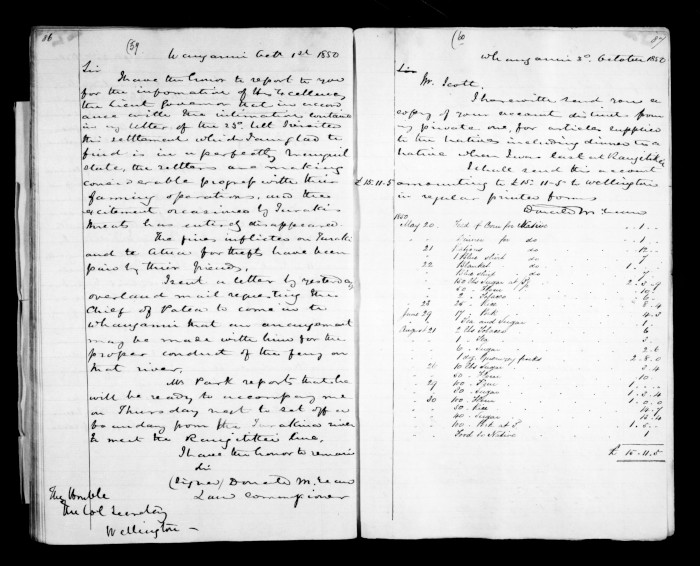 86
(59
Wanganui Octr 1st 1850
Sir
I have the honor to report to you
for the information of His Excellency
the Lieut Governor that in accord
ance with the intimation contained
in my letter of the 25th Ult I visited
this settlement which I am glad to
find is in a perfectly tranquil
state, the settlers are making
considerable progress with their
farming operations, and the
excitement occasioned by
threats has entirely disappeared.
The fines inflicted on
and te Atua for thefts have been
paid by their friends.
I sent a letter by yesterday
overland mail requesting the
Chief of Patea to come in to
Whanganui that an arrangement
may be made with him for the
proper conduct of the ferry on
that river.
Mr Park reports that he
will be ready to accompany me
on Thursday next to set off a
boundary from the Turakina river
to meet the Rangitikei line.
I have the honor to remain
Sir
(Signed) Donald McLean
Land Commissioner
The Honble
The Col Secretary
Wellington
(60
87
Whanganui 3d October 1850
Sir
Mr. Scott,
I herewith send you a
copy of your account distinct from
my private one, for articles supplied
to the Natives including dinner to a
Native when I was last at Rangitikei
I shall send this account
£15.11.5 amounting to £15.11.5 to Wellington
in regular printed forms
Donald McLean
1850
May 20 Feed of Corn for Native .. 1 ..
Dinner for do .. 1 ..
21
1 Blue shirt do 7
22 Blankets do 1 . .
Blue shirt do 7
150 lbs Sugar at
50 . Flour 10
2 . Tobacco 6
28 25 . Rice 8.4
June 29 17 . Pork 4.3
July Tea and Sugar 1
August 21 2 lbs Tobacco 6
1 . Tea 3
6 . Sugar 2.6
2.8.0
26 10 lbs Sugar 3.4
50 . Flour 10
29 100 . Flour 1 . .
50 . Sugar 1.5.4
30 100 . Flour 1.0.0
50 . Rice 14.7
40 . Sugar
100 . Pork at 1.5.
Food to Native 1
£ 15.11.5